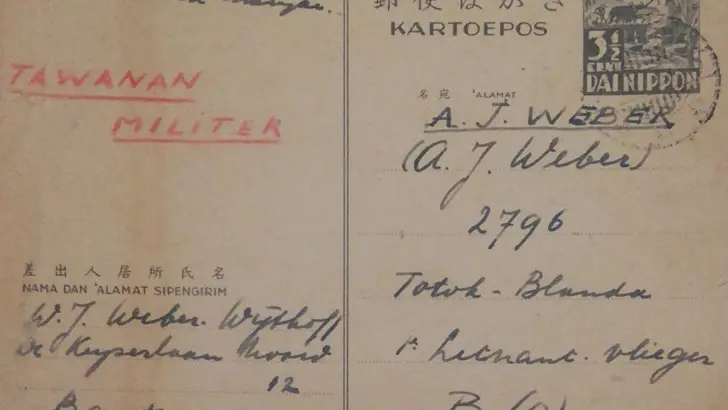 TAWANAN
MILITER
差出人居所氏名
NAMA DAN 'ALAMAT SIPENGIRIM
W. J. Weber. Wijthoff
De Keyserlaan Noord
12
郵便はがき
KARTOEPOS
3½
CENT
DAI NIPPON
名宛 'ALAMAT
A. J. WEBER
(A. J. Weber)
2796
Totok - Blanda
1e Luitnant. vlieger